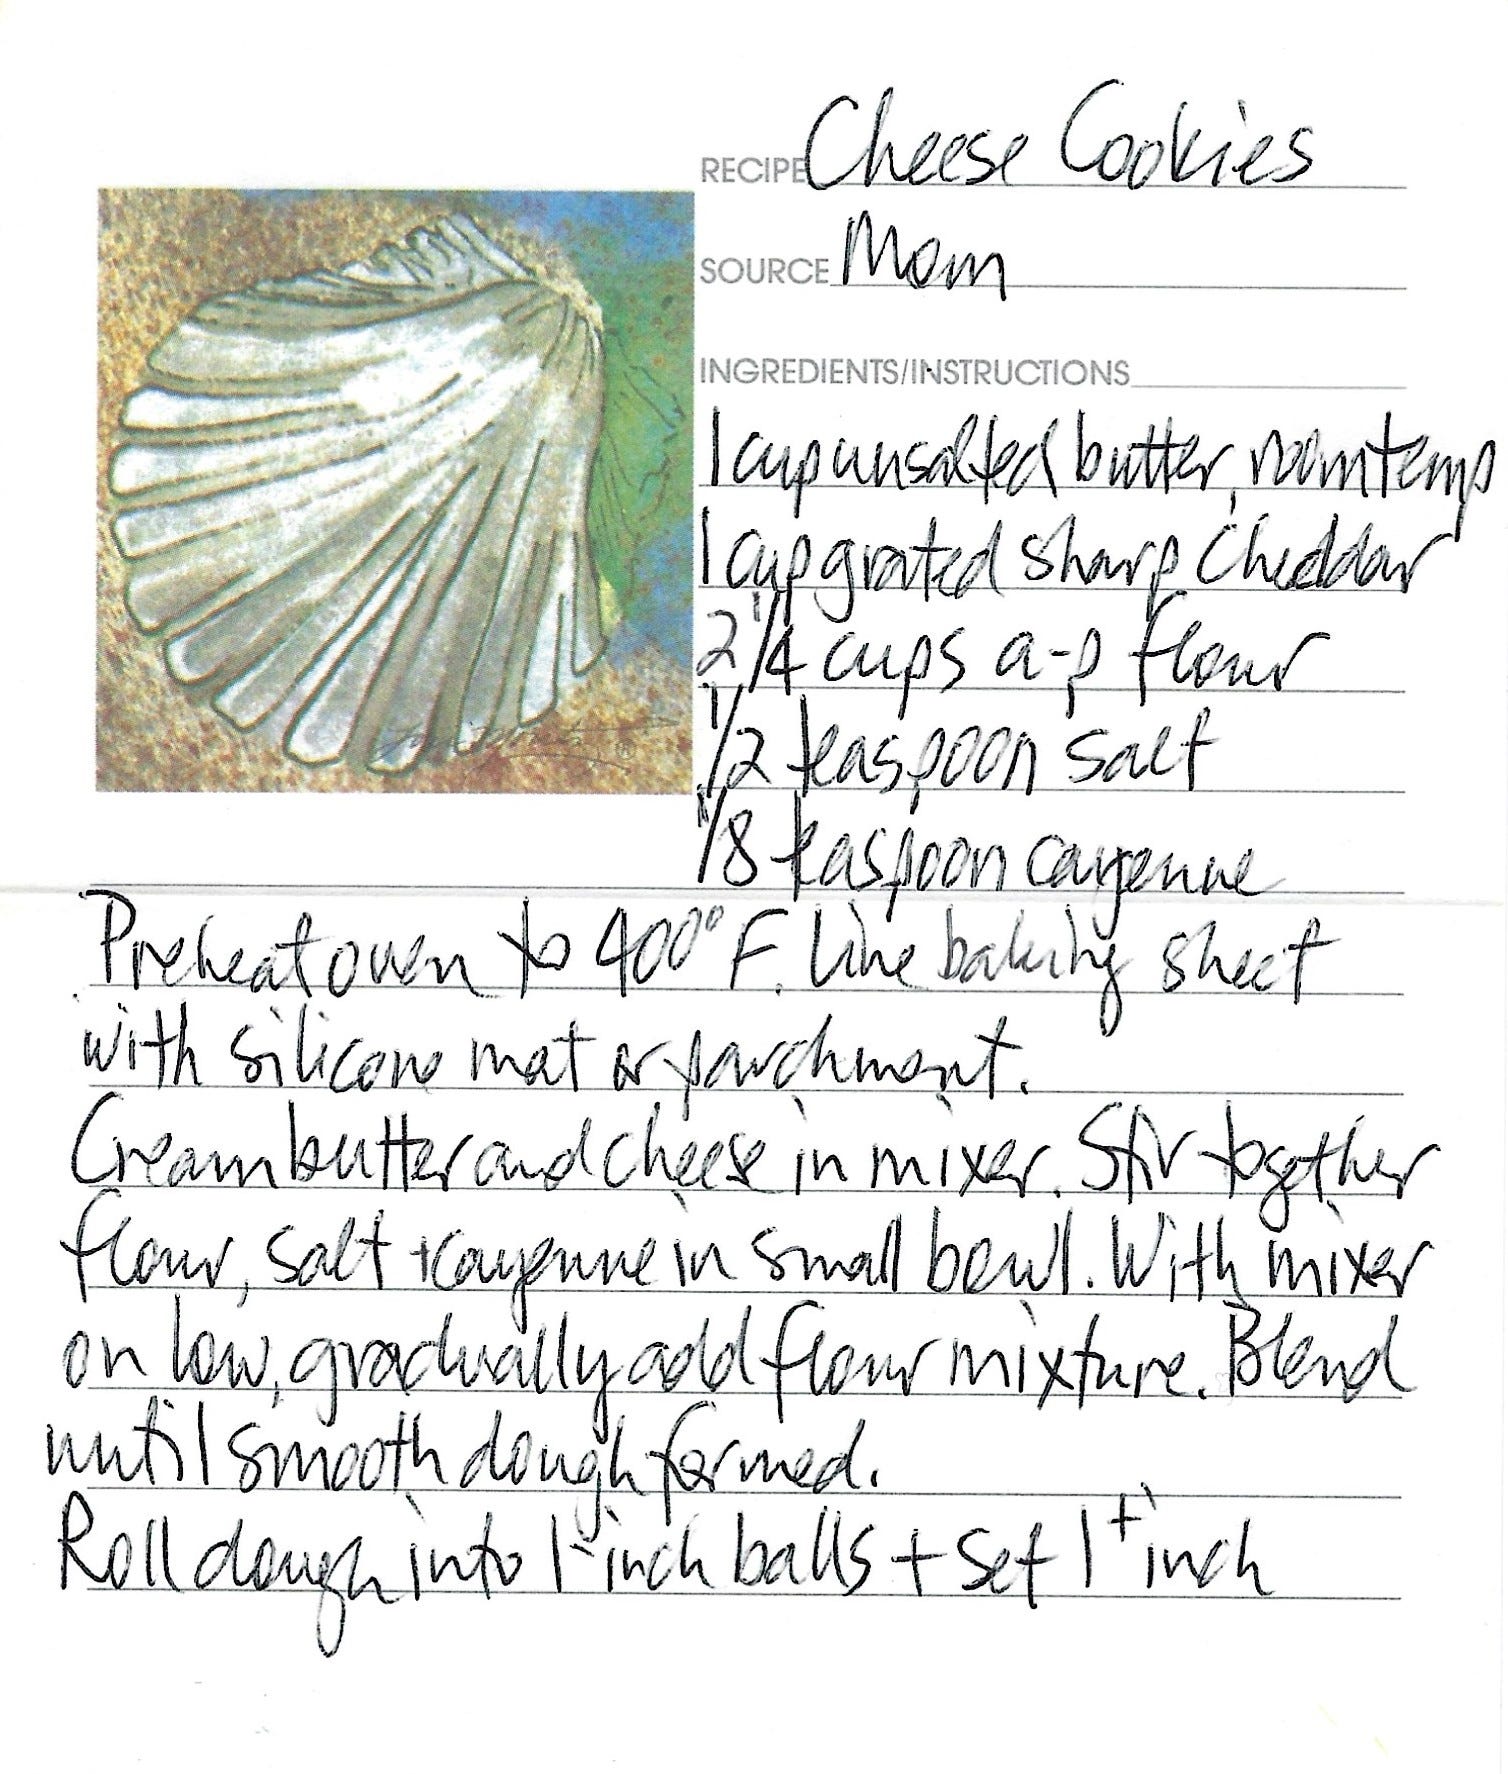 RECIPE Cheese Cookies
SOURCE Mom
INGREDIENTS/INSTRUCTIONS
1 cup unsalted butter, room temp
1 cup grated sharp cheddar
2 1/4 cups a-p flour
1/2 teaspoon salt
1/8 teaspoon cayenne
Preheat oven to 400° F. Line baking sheet
with silicone mat or parchment.
Cream butter and cheese in mixer. Stir together
flour, salt + cayenne in small bowl. With mixer
on low, gradually add flour mixture. Blend
until smooth dough formed.
Roll dough into 1-inch balls + set 1+ inch